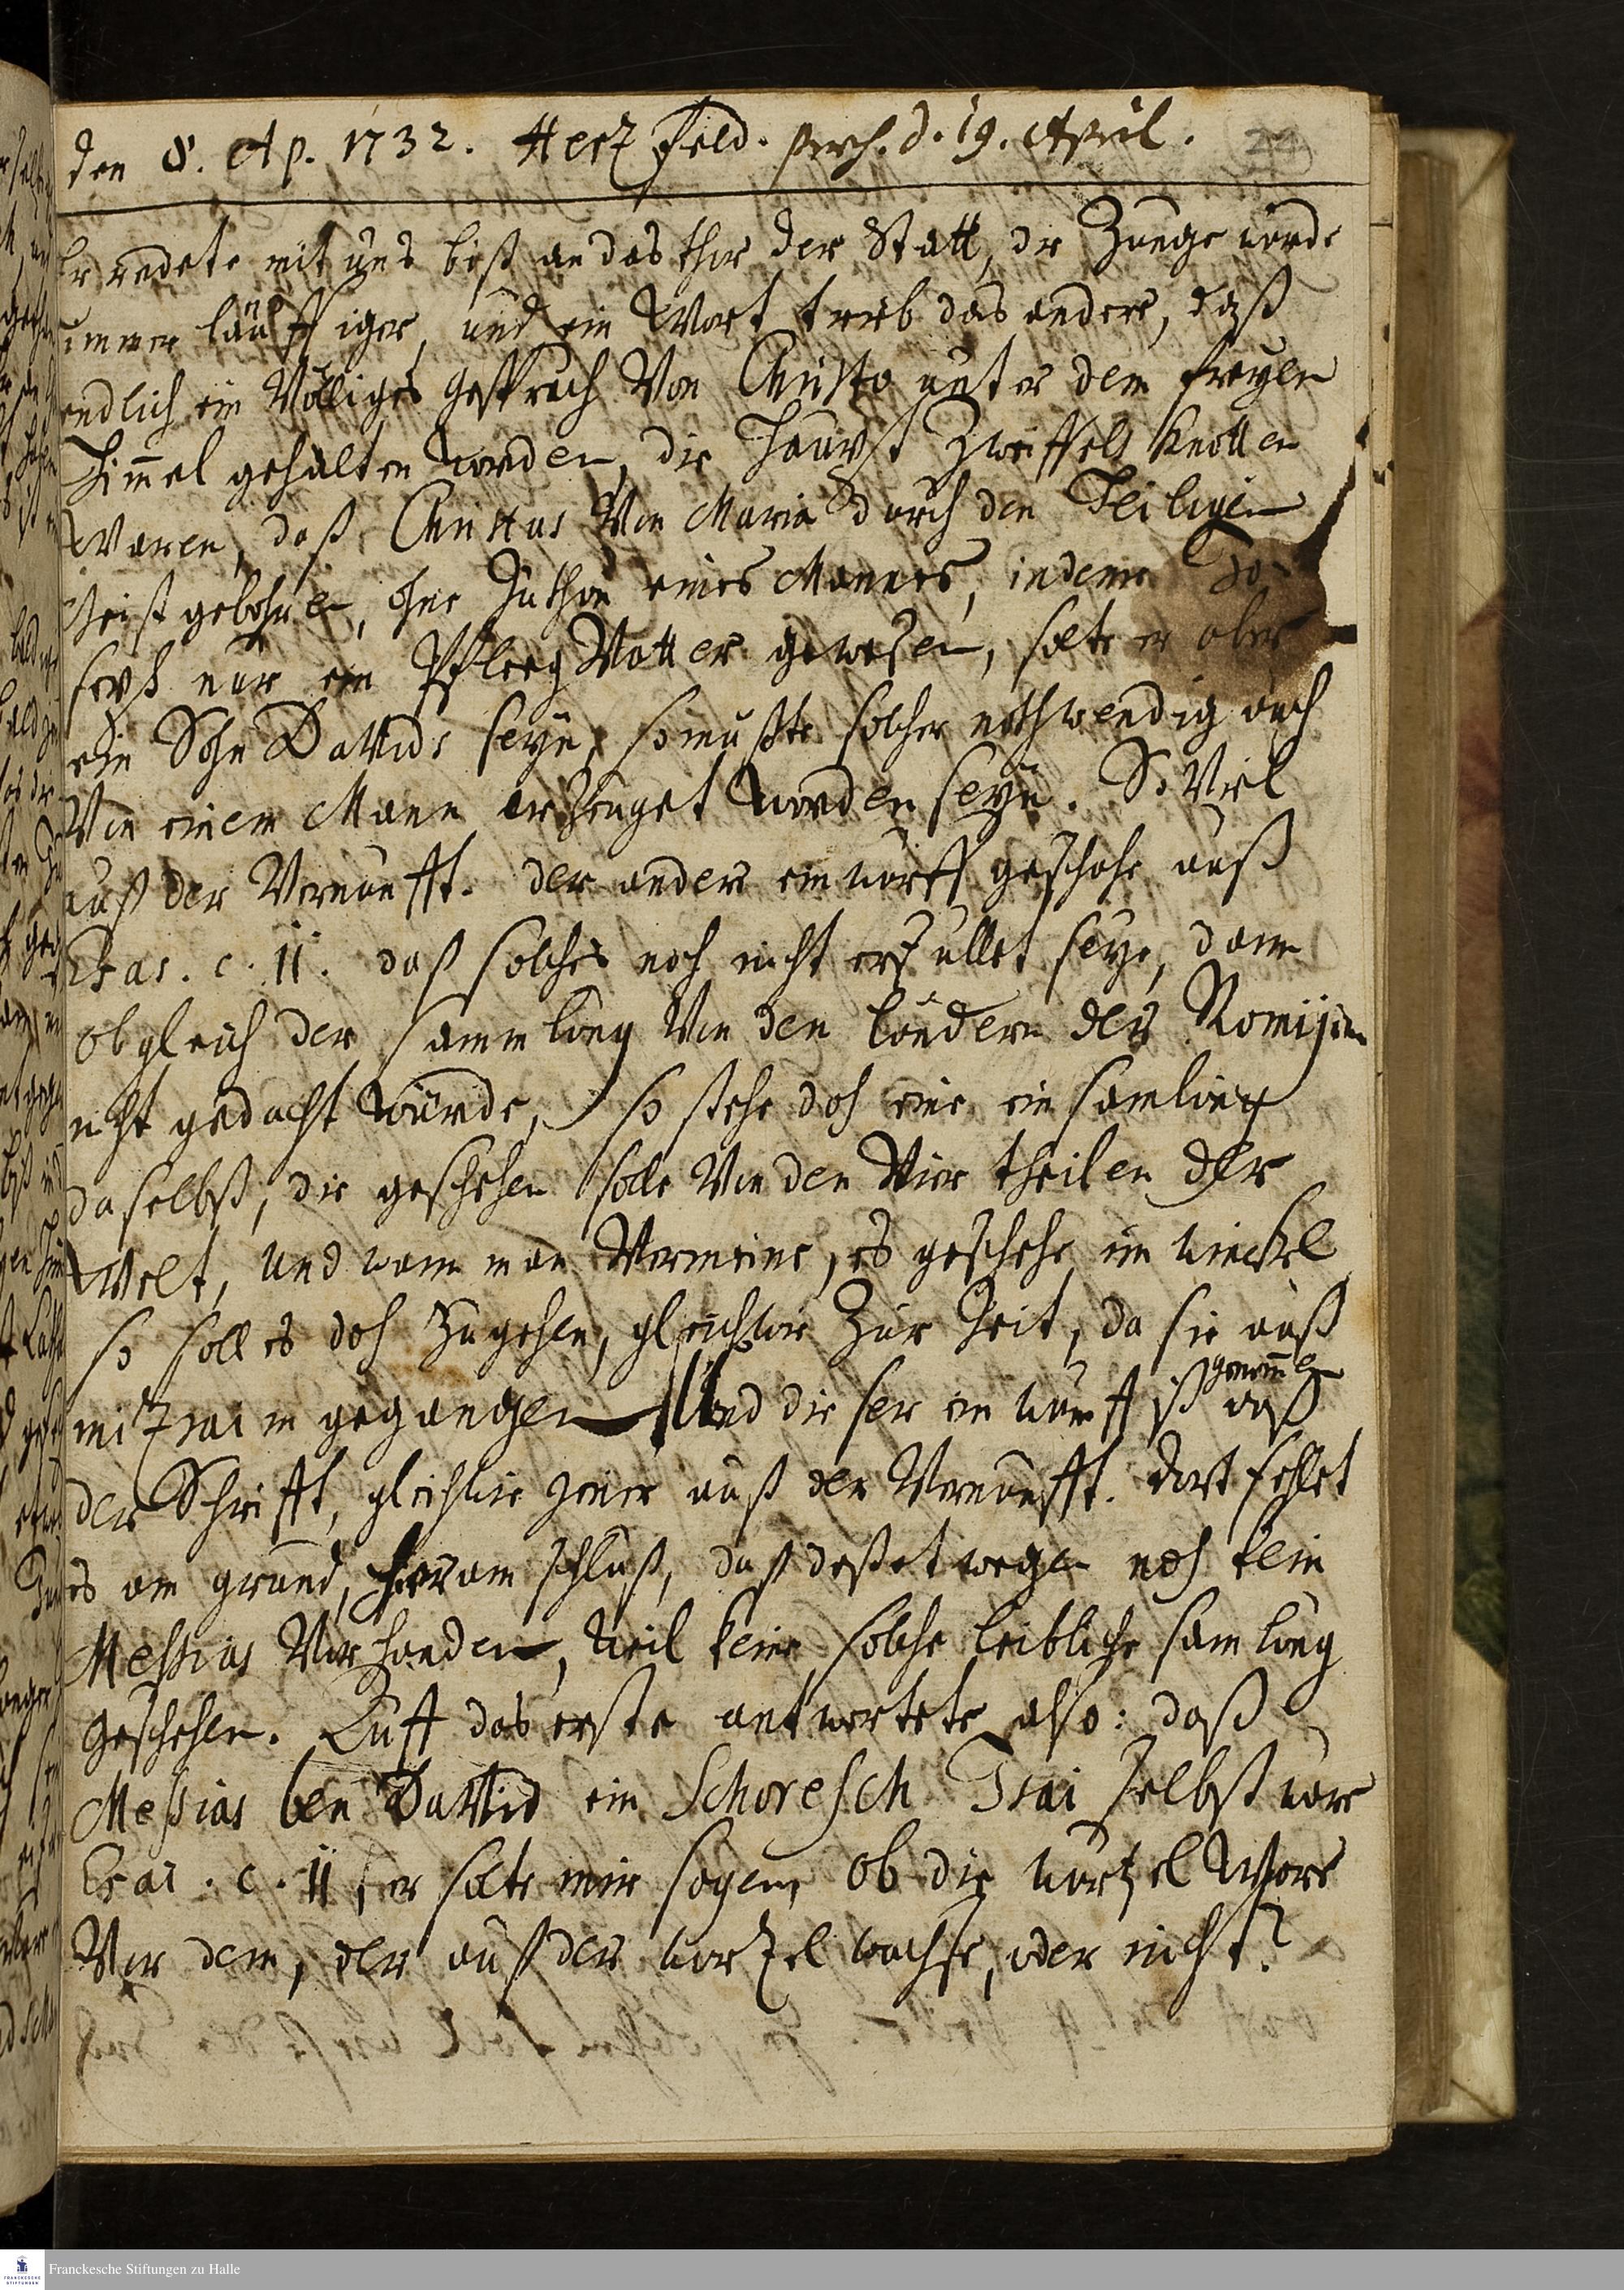 den 8. Ap. 1732. Hertzfeld. parch. d. 19. April.
22
Er redete mit uns biß an das thor der Statt, die Zunge wurde
immer läuffiger, und ein Wort trieb das andere, daß
endlich ein Völliges gespräch Von Christo unter dem freyen
Himel gehalten worden, die Haupt Zweiffels Knotten
Waren, daß Christus Von Maria durch den Heiligen
Geist gebohren, ohne Zuthun eines Mannes, indeme Jo-
seph nur ein Pfleeg Vatter gewesen, solte er aber
ein Sohn Davids seyn, so müßte solcher nothwendig auch
Von einem Mann erzeuget worden seyn. So Viel
auß der Vernunfft. der andere einwurff geschahe auß
Esai. c. 11. daß solches noch nicht erfüllet seye, dann
obgleich der sammlung Von den ländern der Romijim
nicht gedacht würde, so stehe doch eine einsamlung
daselbst, die geschehen solle Von den Vier theilen der
Welt, und wann man Vermeine, es geschehe im winckel
so soll es doch Zugehen, gleichwie Zur Zeit, da sie auß
mitzraim gegangen. Und dieser einwurff ist genomen auß
der Schrifft, gleichwie jener auß der Vernunfft. dort fehlet
es am grund, hier am schluß, daß deßetwegen noch kein
Messias Vorhanden, weil keine solche leibliche samlung
geschehen. Auff das erste antwortete also: daß
Messias ben David ein Schoresch Isai selbst ware
Esai. c. 11, er solte mir sagen, ob die wurtzel Wore
Vor dem, der auß der wurtzel wachse, oder nicht?
Franckesche Stiftungen zu Halle